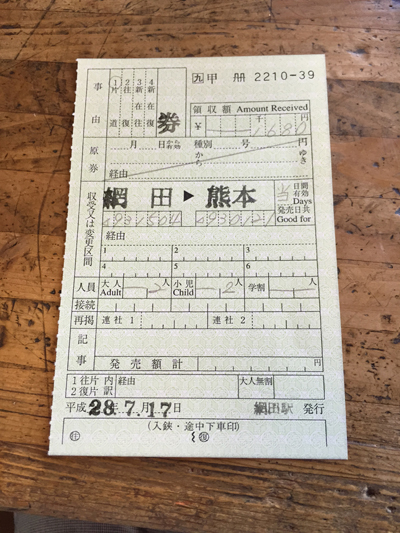 事由
①片道
2往復
3新在往
4新在復
券
九 甲 冊 2210-39
領収額 Amount Received
￥ 千 円
1680
原券
月 日から有効 種別 号 円
から ゆき
経由
収受又は変更区間
網田 ▶ 熊本
当 日間有効 Days
発売日共 Good for
経由
1 2 3
4 5 6
人員 大人 Adult 2人 小児 Child 2人 学割 人
接続
再掲 連社1 連社2
記事
発売額計 円
1往片 内
2復片 訳
経由
大人無割
平成28年7月17日 網田駅 発行
(入鋏・途中下車印)
往 復